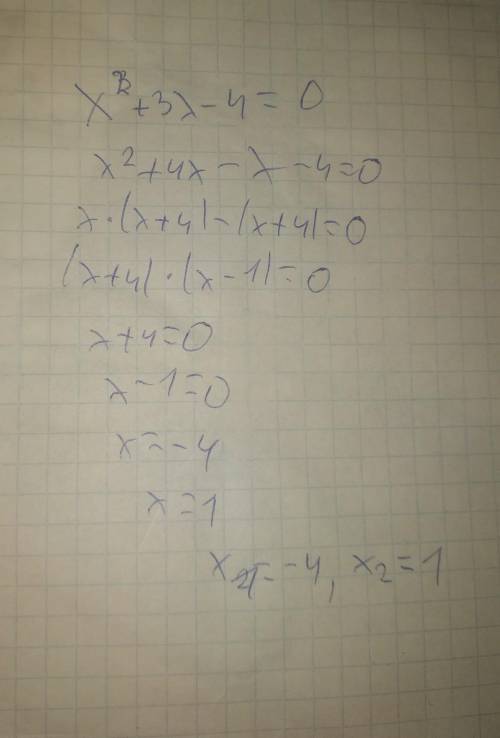 x²+3x-4=0
x²+4x-x-4=0
x·(x+4)-(x+4)=0
(x+4)·(x-1)=0
x+4=0
x-1=0
x=-4
x=1
x₁=-4, x₂=1